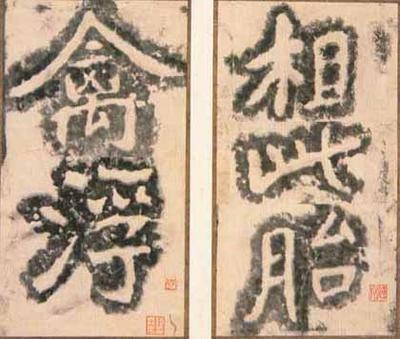 相此胎
禽浮